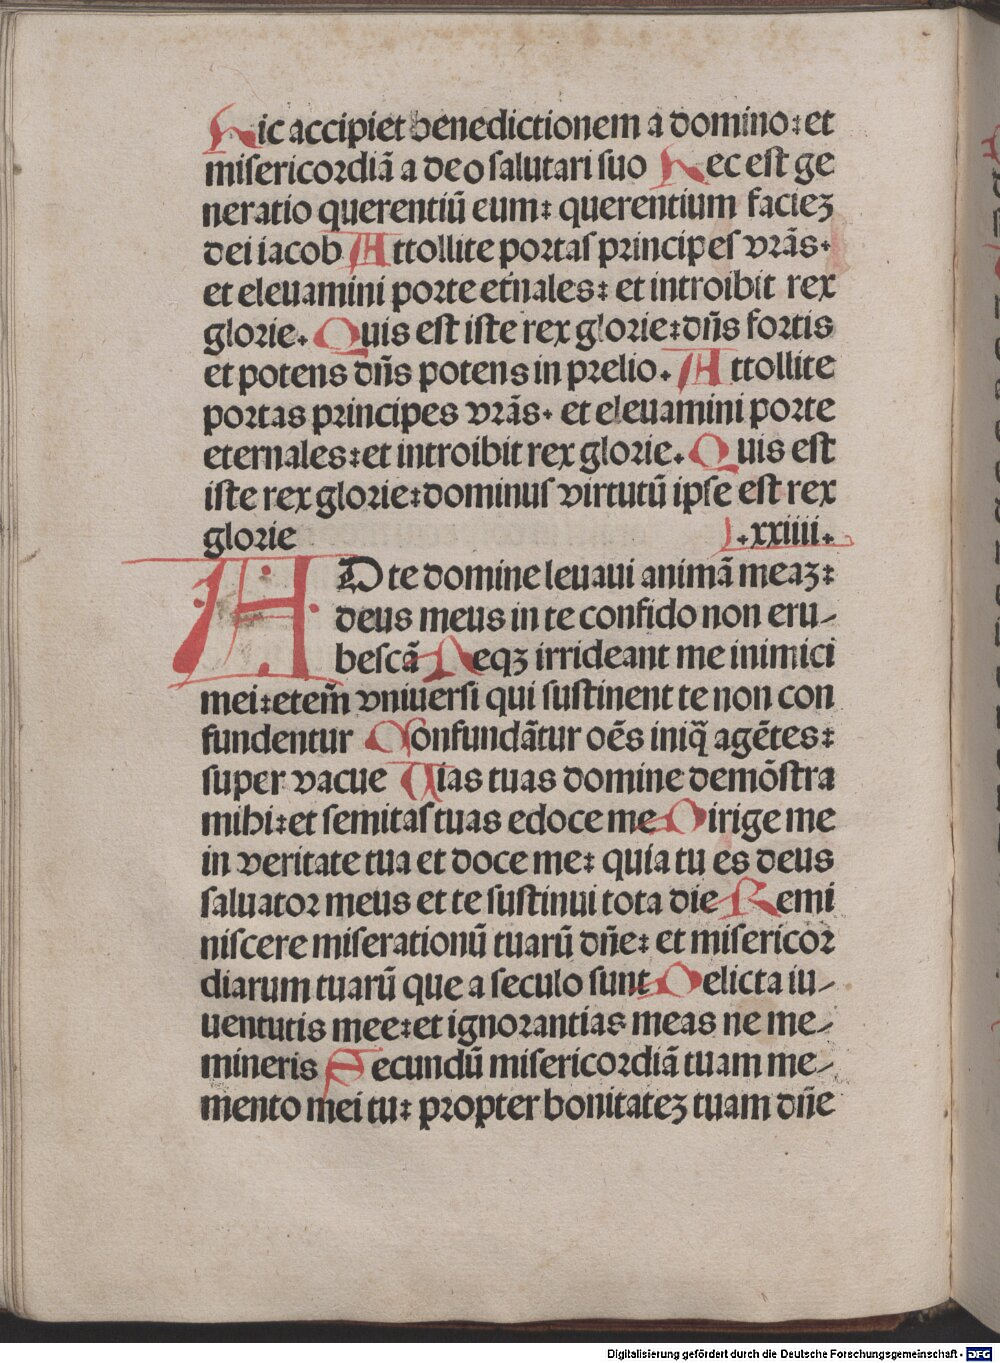 Hic accipiet benedictionem a domino: et
misericordiã a deo salutari suo Hec est ge
neratio querentiũ eum: querentium facieꝫ
dei iacob Attollite portas principes vrãs.
et eleuamini porte etñales: et introibit rex
glorie. Quis est iste rex glorie: dñs fortis
et potens dñs potens in prelio. Attollite
portas principes vrãs. et eleuamini porte
eternales: et introibit rex glorie. Quis est
iste rex glorie: dominus virtutũ ipse est rex
glorie .xxiiii.
AD te domine leuaui animã meaꝫ:
deus meus in te confido non eru-
bescã Neqꝫ irrideant me inimici
mei: etem̃ vniuersi qui sustinent te non con
fundentur Confundãtur oẽs iniq̃ agẽtes:
super vacue Uias tuas domine demõstra
mihi: et semitas tuas edoce me Dirige me
in veritate tua et doce me: quia tu es deus
saluator meus et te sustinui tota die Remi
niscere miserationũ tuarũ dñe: et misericor
diarum tuarũ que a seculo sunt Delicta iu-
uentutis mee: et ignorantias meas ne me-
mineris Secundũ misericordiã tuam me-
mento mei tu: propter bonitateꝫ tuam dñe
Digitalisierung gefördert durch die Deutsche Forschungsgemeinschaft - DFG